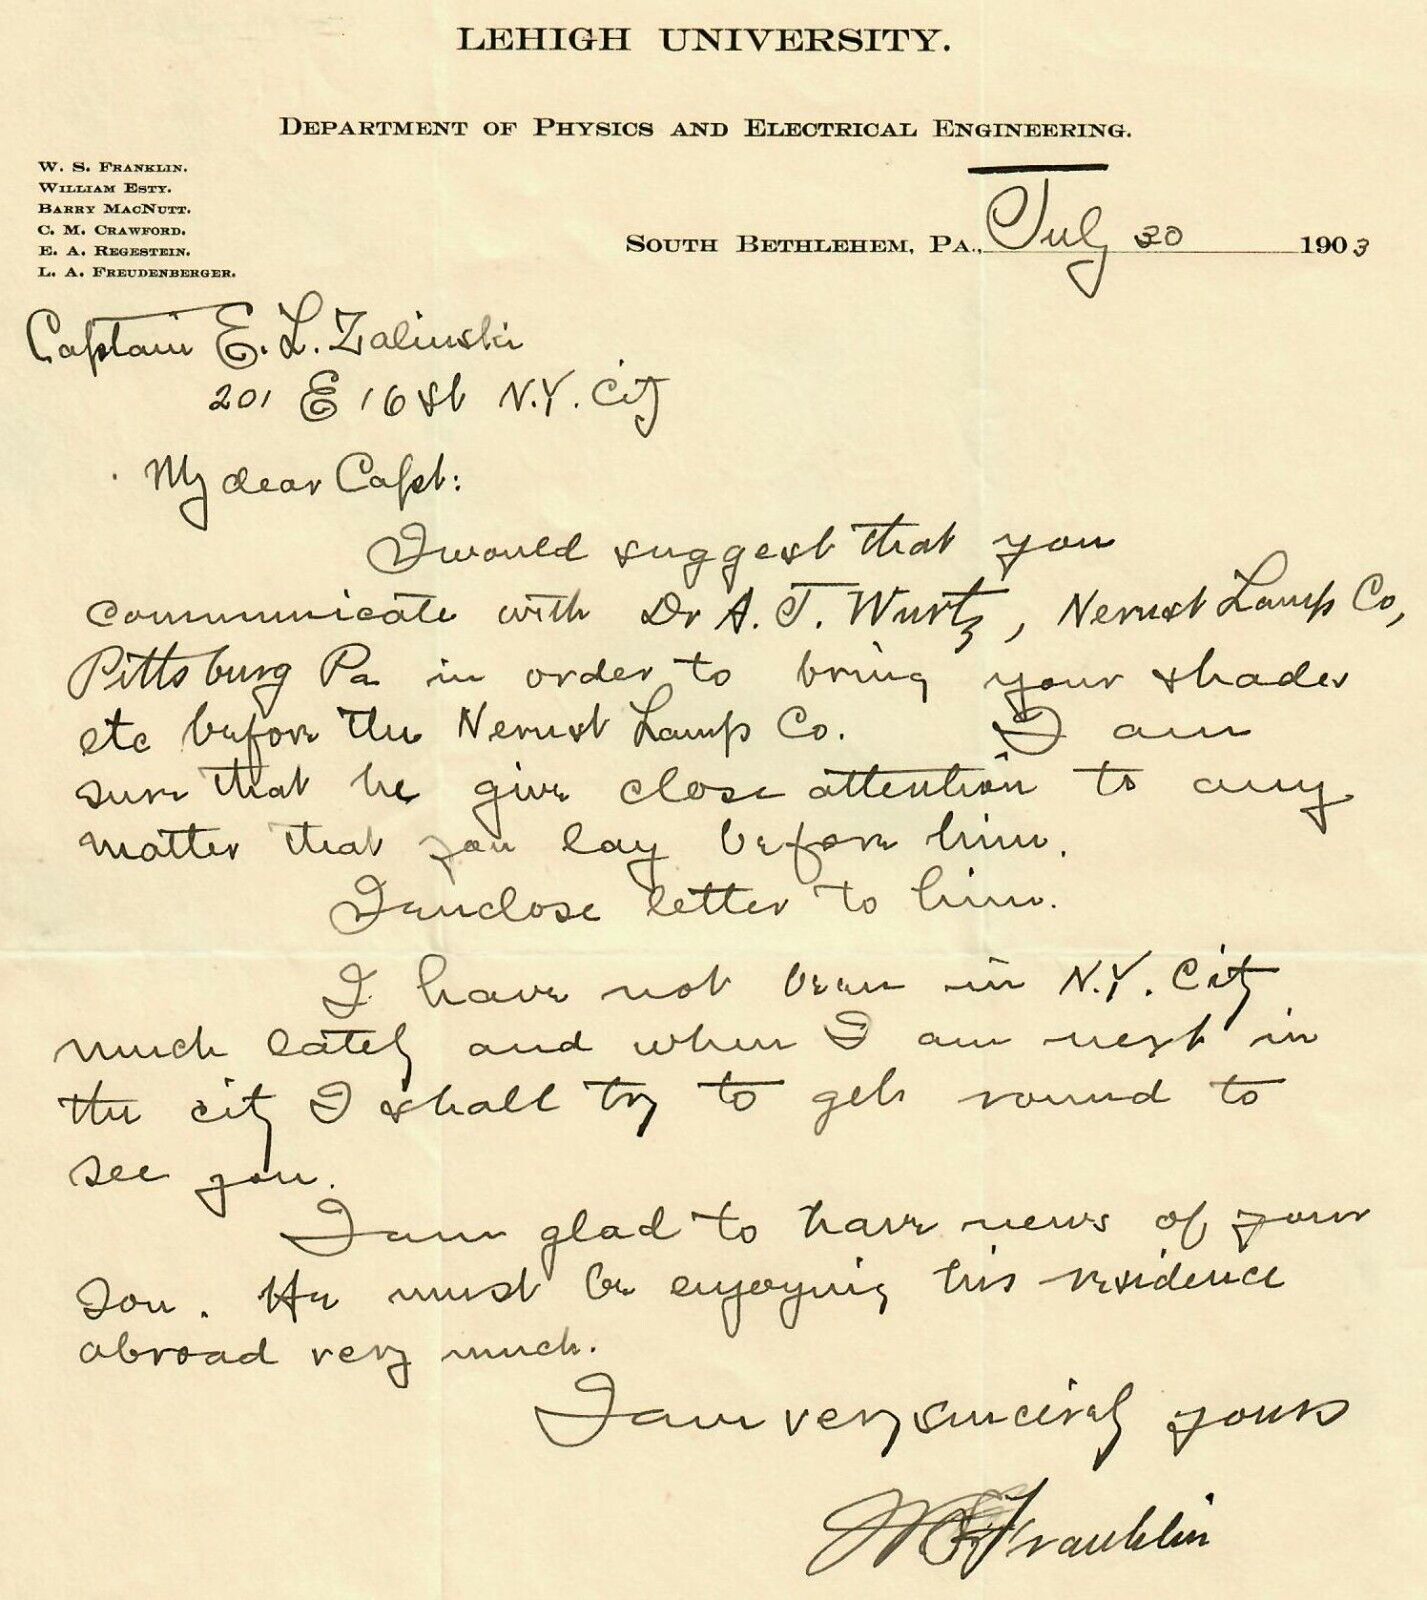 LEHIGH UNIVERSITY.
DEPARTMENT OF PHYSICS AND ELECTRICAL ENGINEERING.
W. S. FRANKLIN.
WILLIAM ESTY.
BARRY MACNUTT.
C. M. CRAWFORD.
E. A. REGESTEIN.
L. A. FREUDENBERGER.
SOUTH BETHLEHEM, PA., July 30 1903
Captain E. L. Zalinski
201 E 16 St N.Y. City
My dear Capt:
I would suggest that you
communicate with Dr A. T. Wurtz, Nernst Lamp Co,
Pittsburg Pa in order to bring your shades
etc before the Nernst Lamp Co. I am
sure that he give close attention to any
matter that you lay before him.
I enclose letter to him.
I have not been in N.Y. City
much lately and when I am next in
the city I shall try to get round to
see you.
I am glad to have news of your
son. He must be enjoying his residence
abroad very much.
I am very sincerely yours
W S Franklin